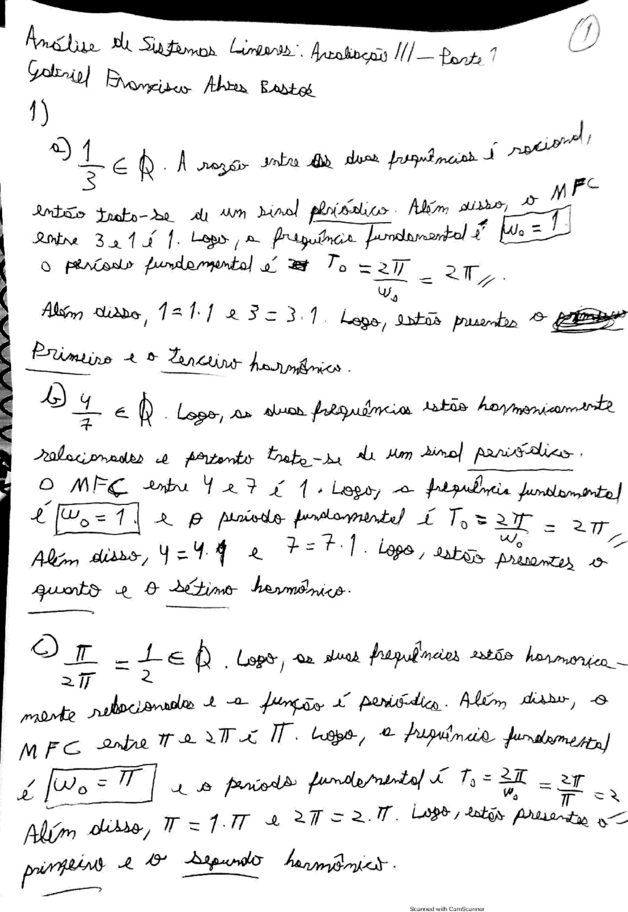 1
Análise de Sistemas Lineares: Avaliação III — Parte 1
Gabriel Francisco Alves Bastos
1)
a) 1/3 ∈ Q. A razão entre as duas frequências é racional,
então trata-se de um sinal periódico. Além disso, o MFC
entre 3 e 1 é 1. Logo, a frequência fundamental é w₀ = 1.
o período fundamental é T₀ = 2π/w₀ = 2π //.
Além disso, 1 = 1·1 e 3 = 3·1. Logo, estão presentes o
Primeiro e o terceiro harmônico.
b) 4/7 ∈ Q. Logo, as duas frequências estão harmonicamente
relacionadas e portanto trata-se de um sinal periódico.
O MFC entre 4 e 7 é 1. Logo, a frequência fundamental
é w₀ = 1. e o período fundamental é T₀ = 2π/w₀ = 2π //
Além disso, 4 = 4·1 e 7 = 7·1. Logo, estão presentes o
quarto e o sétimo harmônico.
c) π/2π = 1/2 ∈ Q. Logo, as duas frequências estão harmonica-
mente relacionadas e a função é periódica. Além disso, o
MFC entre π e 2π é π. Logo, a frequência fundamental
é w₀ = π e o período fundamental é T₀ = 2π/w₀ = 2π/π = 2
Além disso, π = 1·π e 2π = 2·π. Logo, estão presentes o
primeiro e o segundo harmônico.
Scanned with CamScanner